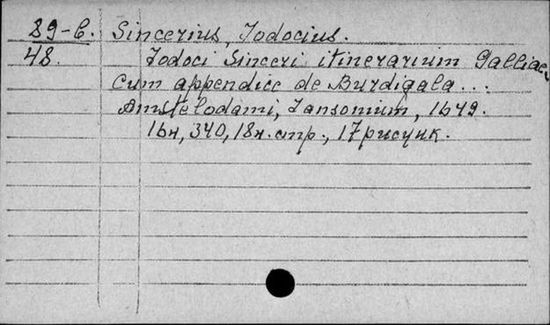 89-6. Sincerius, Jodocius.
48. Jodoci Sinceri itinerarium Galliae,
Cum appendice de Burdigala...
Amstelodami, Jansomium, 1649.
16н, 340, 18н. стр., 17 рисунк.